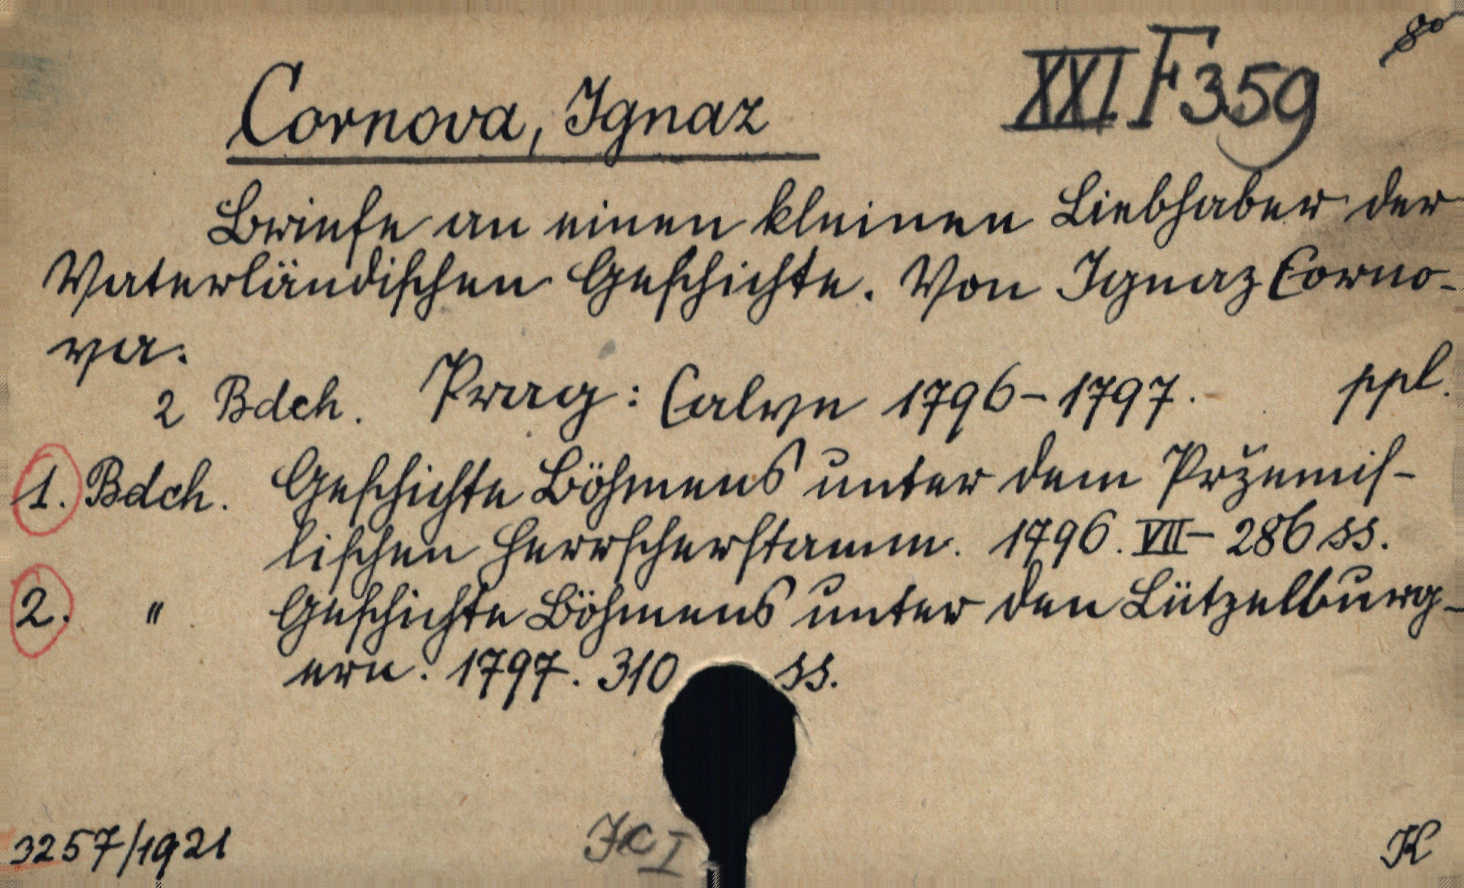 8°
XXI F 359
Cornova, Ignaz
Briefe an einen kleinen Liebhaber der
Vaterländischen Geschichte. Von Ignaz Corno-
va.
2 Bdch. Prag: Calve 1796-1797. ppl.
1. Bdch. Geschichte Böhmens unter dem Pržemis-
lischen Herrscherstamm. 1796. VII- 286 ss.
2. " Geschichte Böhmens unter den Lützelburg-
ern. 1797. 310 ss.
3257/1921
K